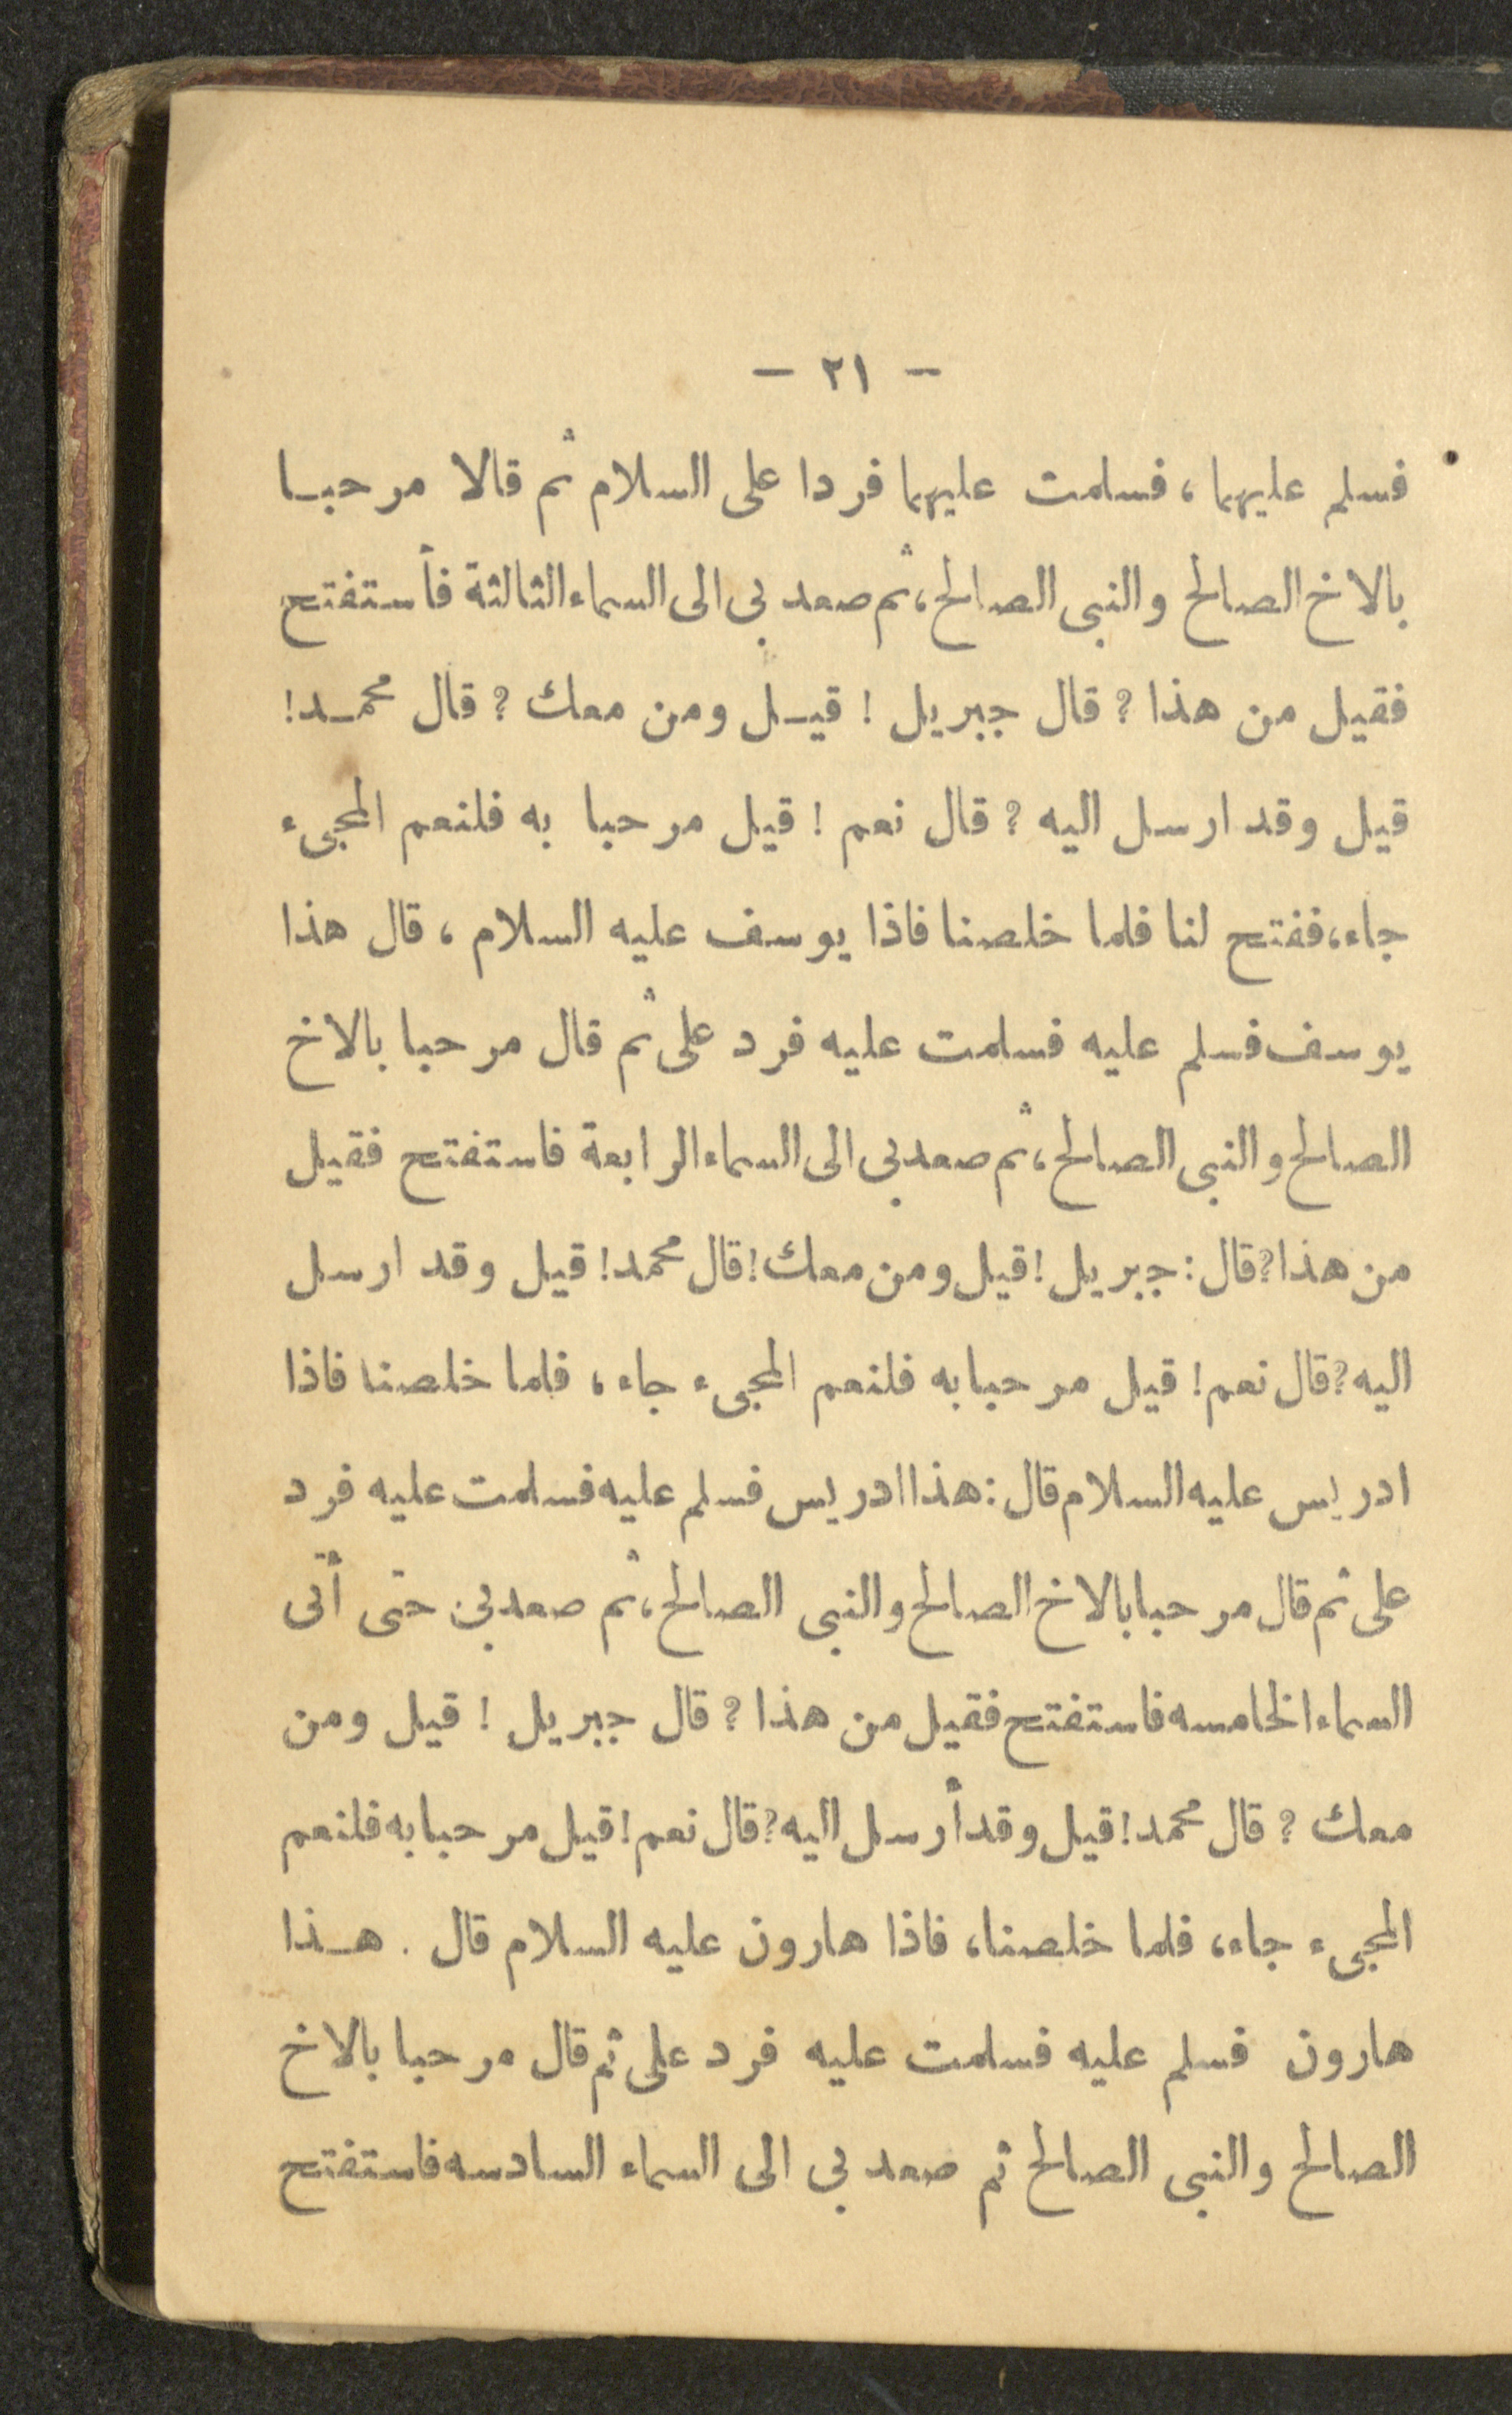 - ٢١ -
فسلم عليهما ، فسلمت عليهما فردا على السلام ثم قالا مرحبا
بالاخ الصالح والنبى الصالح ، ثم صعد بى الى السماء الثالثة فأستفتح
فقيل من هذا ؟ قال جبريل ! قيل ومن معك ؟ قال محمد !
قيل وقد ارسل اليه ؟ قال نعم ! قيل مرحبا به فلنعم المجىء
جاء ، ففتح لنا فلما خلصنا فاذا يوسف عليه السلام ، قال هذا
يوسف فسلم عليه فسلمت عليه فرد على ثم قال مرحبا بالاخ
الصالح والنبى الصالح ، ثم صعد بى الى السماء الرابعة فاستفتح فقيل
من هذا ؟ قال : جبريل ! قيل ومن معك ! قال محمد ! قيل وقد ارسل
اليه ؟ قال نعم ! قيل مرحبا به فلنعم المجىء جاء ، فلما خلصنا فاذا
ادريس عليه السلام قال : هذا ادريس فسلم عليه فسلمت عليه فرد
على ثم قال مرحبا بالاخ الصالح والنبى الصالح ، ثم صعد بى حتى أتى
السماء الخامسه فاستفتح فقيل من هذا ؟ قال جبريل ! قيل ومن
معك ؟ قال محمد ! قيل وقد أرسل اليه ؟ قال نعم ! قيل مرحبا به فلنعم
المجىء جاء ، فلما خلصنا ، فاذا هارون عليه السلام قال . هذا
هارون فسلم عليه فسلمت عليه فرد على ثم قال مرحبا بالاخ
الصالح والنبى الصالح ثم صعد بى الى السماء السادسه فاستفتح